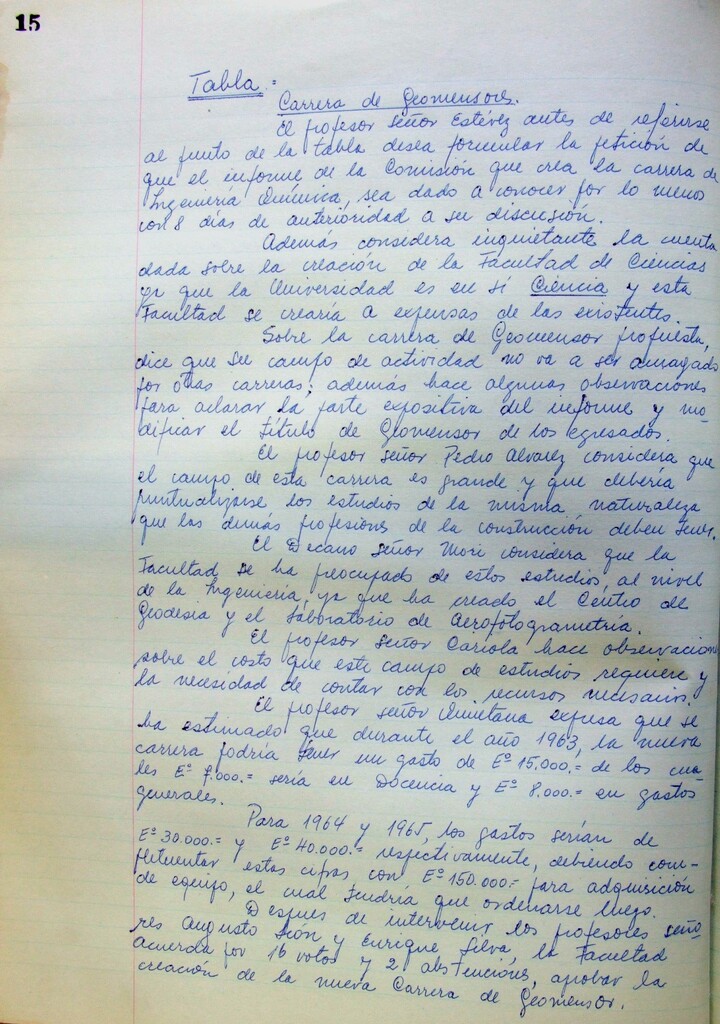 15
Tabla =
Carrera de Geomensores.
El profesor señor Estévez antes de referirse
al punto de la tabla desea formular la petición de
que el informe de la Comisión que crea la carrera de
Ingeniería Química, sea dado a conocer por lo menos
con 8 días de anterioridad a su discusión.
Además considera inquietante la cuenta
dada sobre la creación de la Facultad de Ciencias
ya que la Universidad es en sí Ciencia y esta
Facultad se crearía a expensas de las existentes.
Sobre la carrera de Geomensor propuesta,
dice que su campo de actividad no va a ser amagado
por otras carreras; además hace algunas observaciones
para aclarar la parte expositiva del informe y mo-
dificar el Título de Geomensor de los egresados.
El profesor señor Pedro Alvarez considera que
el campo de esta carrera es grande y que debería
puntualizarse los estudios de la misma naturaleza
que las demás profesiones de la construcción deben tener.
El Decano señor Mori considera que la
Facultad se ha preocupado de estos estudios al nivel
de la Ingeniería, ya que ha creado el Centro de
Geodesia y el Laboratorio de Aerofotogrametría.
El profesor señor Cariola hace observación
sobre el costo que este campo de estudios requiere y
la necesidad de contar con los recursos necesarios.
El profesor señor Quintana expresa que se
ha estimado que durante el año 1963, la nueva
carrera podría tener un gasto de Eº 15.000.= de los cua-
les Eº 7.000.= sería en Docencia y Eº 8.000.= en gastos
generales.
Para 1964 y 1965, los gastos serían de
Eº 30.000.= y Eº 40.000.= respectivamente, debiendo com-
plementar estas cifras con Eº 150.000.= para adquisición
de equipo, el cual tendría que ordenarse luego.
Despues de intervenir los profesores seño-
res Augusto León y Enrique Silva, la Facultad
acuerda por 16 votos y 2 abstenciones, aprobar la
creación de la nueva Carrera de Geomensor.